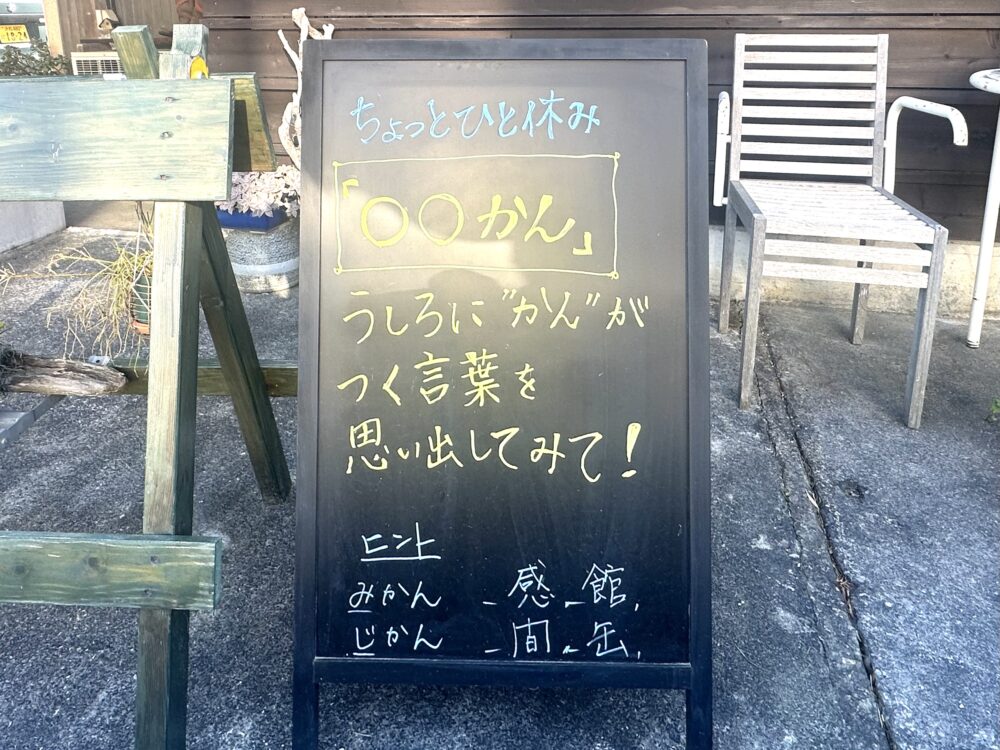 ちょっとひと休み
「〇〇かん」
うしろに"かん"が
つく言葉を
思い出してみて!
ヒント
みかん -感-館,
じかん -間-缶,